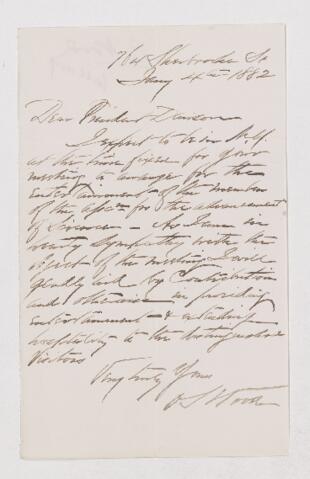 764 Sherbrooke St
Jany 4th 1882
Dear President Dawson
I expect to be in N.Y.
at the time fixed for your
meeting to arrange for the
entertainment of the members
of the Assn for the advancement
of Science – As I am in
hearty sympathy with the
object of the meeting I will
gladly aid by contribution
and otherwise in providing
entertainment & extending
hospitality to the distinguished
Visitors
Very truly Yours
O S Wood